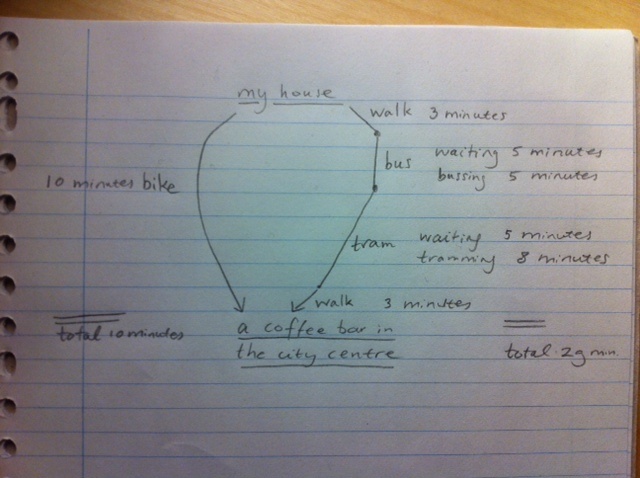 my house
walk 3 minutes
bus
waiting 5 minutes
bussing 5 minutes
10 minutes bike
tram
waiting 5 minutes
tramming 8 minutes
walk 3 minutes
a coffee bar in
the city centre
total 10 minutes
total 29 min.